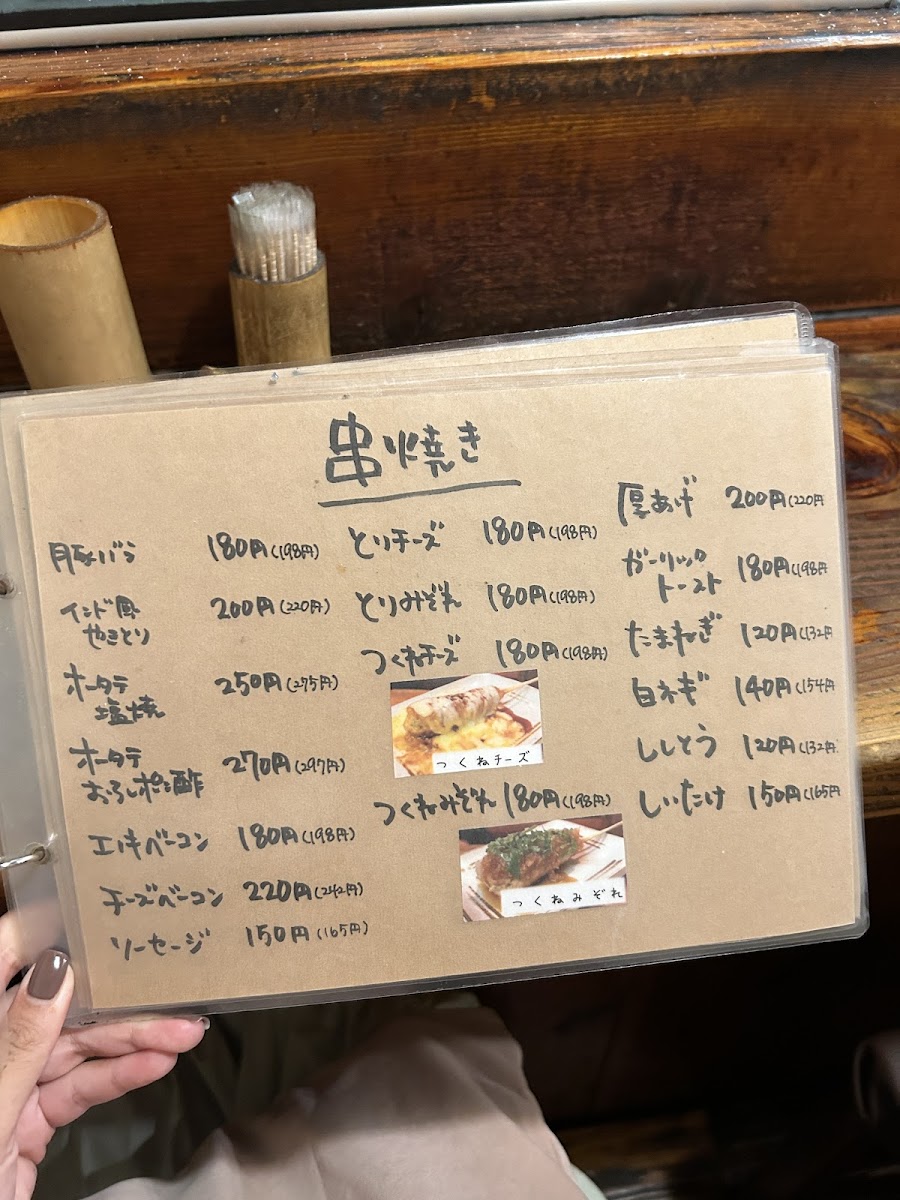 串焼き
豚バラ 180円(198円)
インド風
やきとり 200円(220円)
ホタテ
塩焼 250円(275円)
ホタテ
おろしポン酢 270円(297円)
エノキベーコン 180円(198円)
チーズベーコン 220円(242円)
ソーセージ 150円(165円)
とりチーズ 180円(198円)
とりみぞれ 180円(198円)
つくねチーズ 180円(198円)
つくねチーズ
つくねみぞれ 180円(198円)
つくねみぞれ
厚あげ 200円(220円
ガーリック
トースト 180円(198円
たまねぎ 120円(132円
白ネギ 140円(154円
ししとう 120円(132円
しいたけ 150円(165円